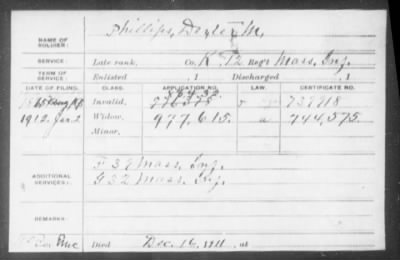 NAME OF SOLDIER: Phillips, M.
SERVICE: Late rank, Co. K, 12 Regt Mass. Inf.
TERM OF SERVICE: Enlisted , 1 Discharged , 1
DATE OF FILING. CLASS. APPLICATION NO. LAW. CERTIFICATE NO.
Invalid.
1912. Jan. 2 Widow. 977.615. 744,575.
Minor.
F 39 Mass. Inf.
ADDITIONAL SERVICES: G 32 Mass. Inf.
REMARKS:
Died Dec. 16, 1911, at